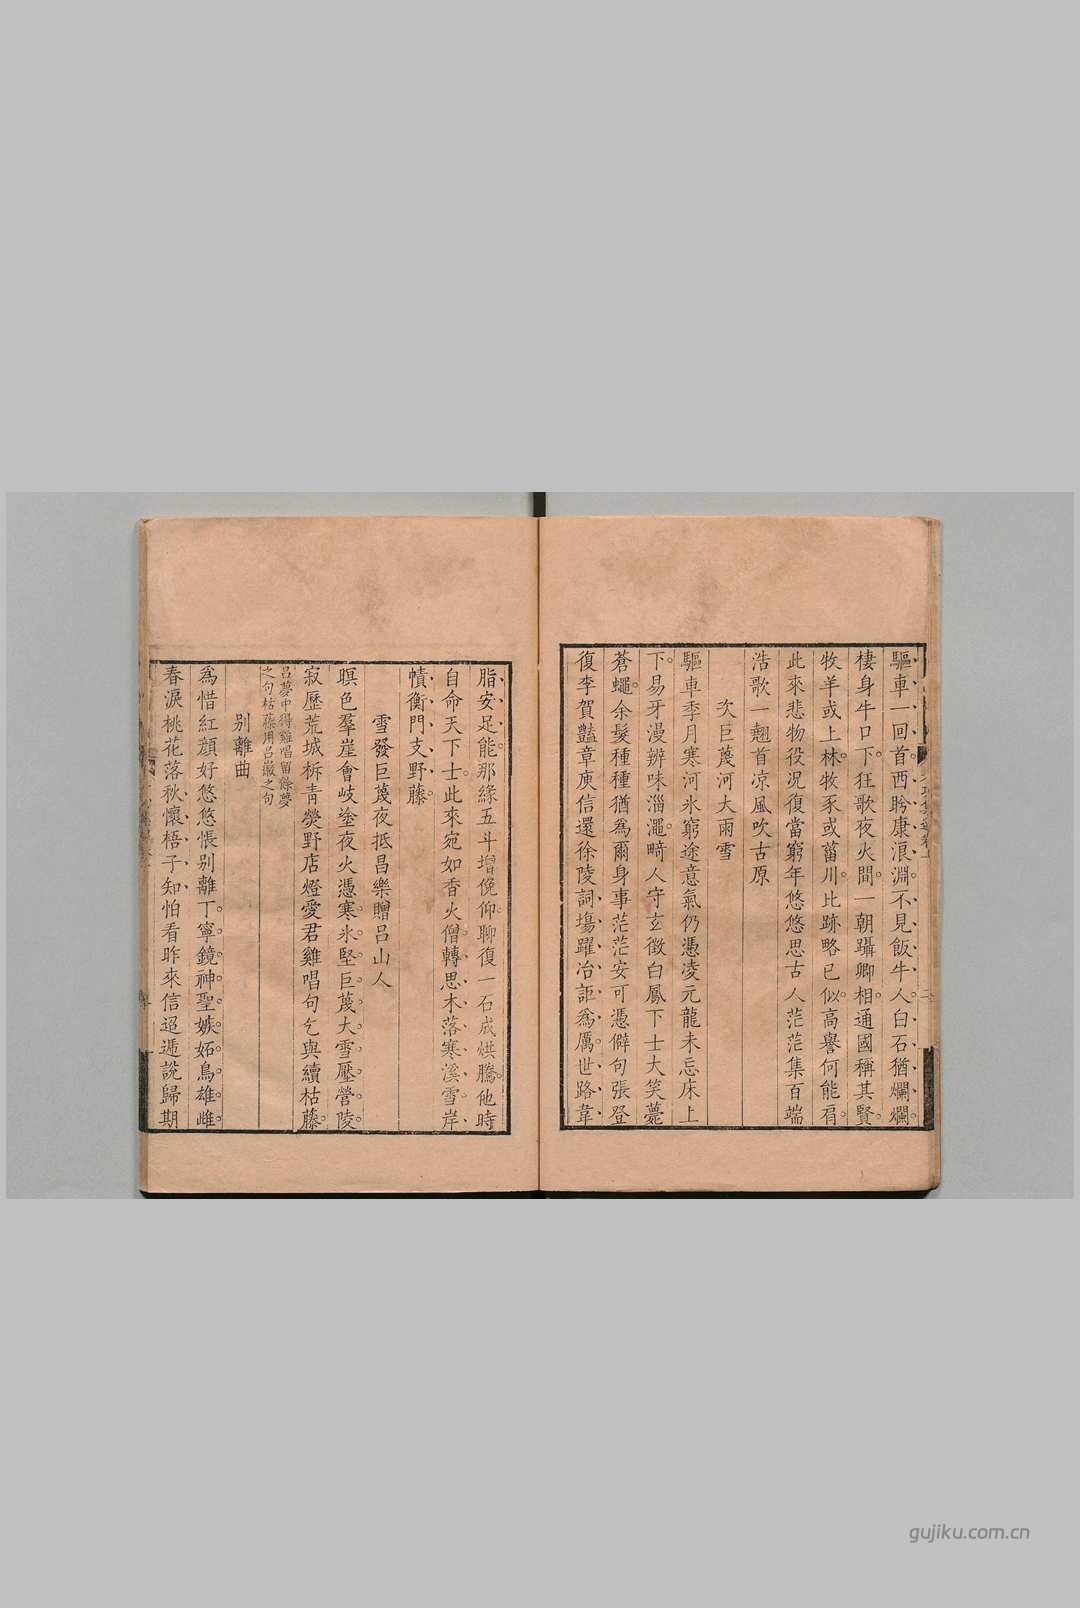 驅車一回首西昑康浪淵不見飯牛人白石猶爛爛
棲身牛口下狂歌夜火間一朝躡卿相通國稱其賢
牧羊或上林牧豕或菑川比跡略已似高譽何能肩
此來悲物役況復當窮年悠悠思古人茫茫集百端
浩歌一翹首凉風吹古原
次巨蔑河大雨雪
驅車季月寒河氷窮途意氣仍憑凌元龍未忘床上
下易牙漫辨味淄澠畸人守玄徵白鳳下士大笑薨
蒼蠅余髮種種猶為爾身事茫茫安可憑僻句張登
復李賀豔章庾信還徐陵詞塲躍冶詎為厲世路韋
脂安足能那緣五斗增俛仰聊復一石成烘騰他時
自命天下士此來宛如香火僧轉思木落寒溪雪岸
幘衡門支野藤
雪發巨蔑夜抵昌樂贈呂山人
暝色羣崖會岐塗夜火憑寒氷堅巨蔑大雪壓營陵
寂歷荒城柝青熒野店燈愛君雞唱句乞與續枯藤
呂夢中得雞唱留餘夢
之句枯藤用呂巖之句
別離曲
為惜紅顔好悠悠悵别離丁寧鏡神聖嫉妬鳥雄雌
春淚桃花落秋懷梧子知怕看昨來信迢遞説歸期
gujiku.com.cn